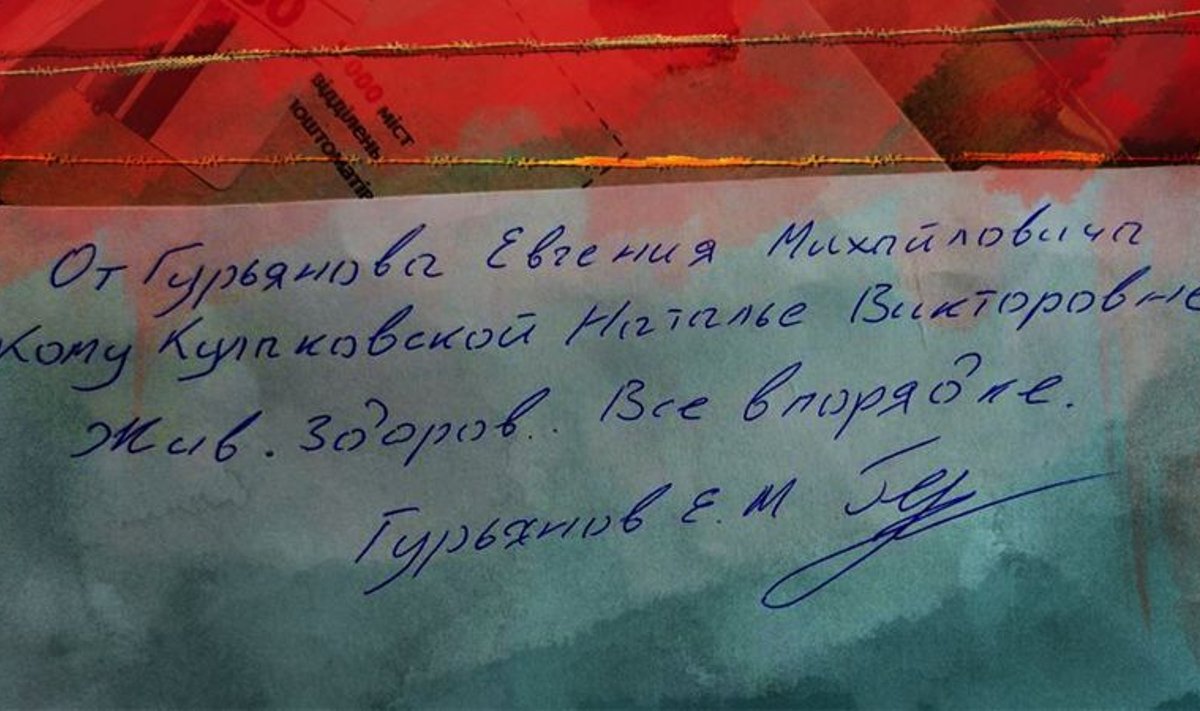 000 міст
відділень
поштоматів
От Гурьянова Евгения Михайловича
Кому Кулаковской Наталье Викторовне
Жив. Здоров.. Все впорядке.
Гурьянов Е.М